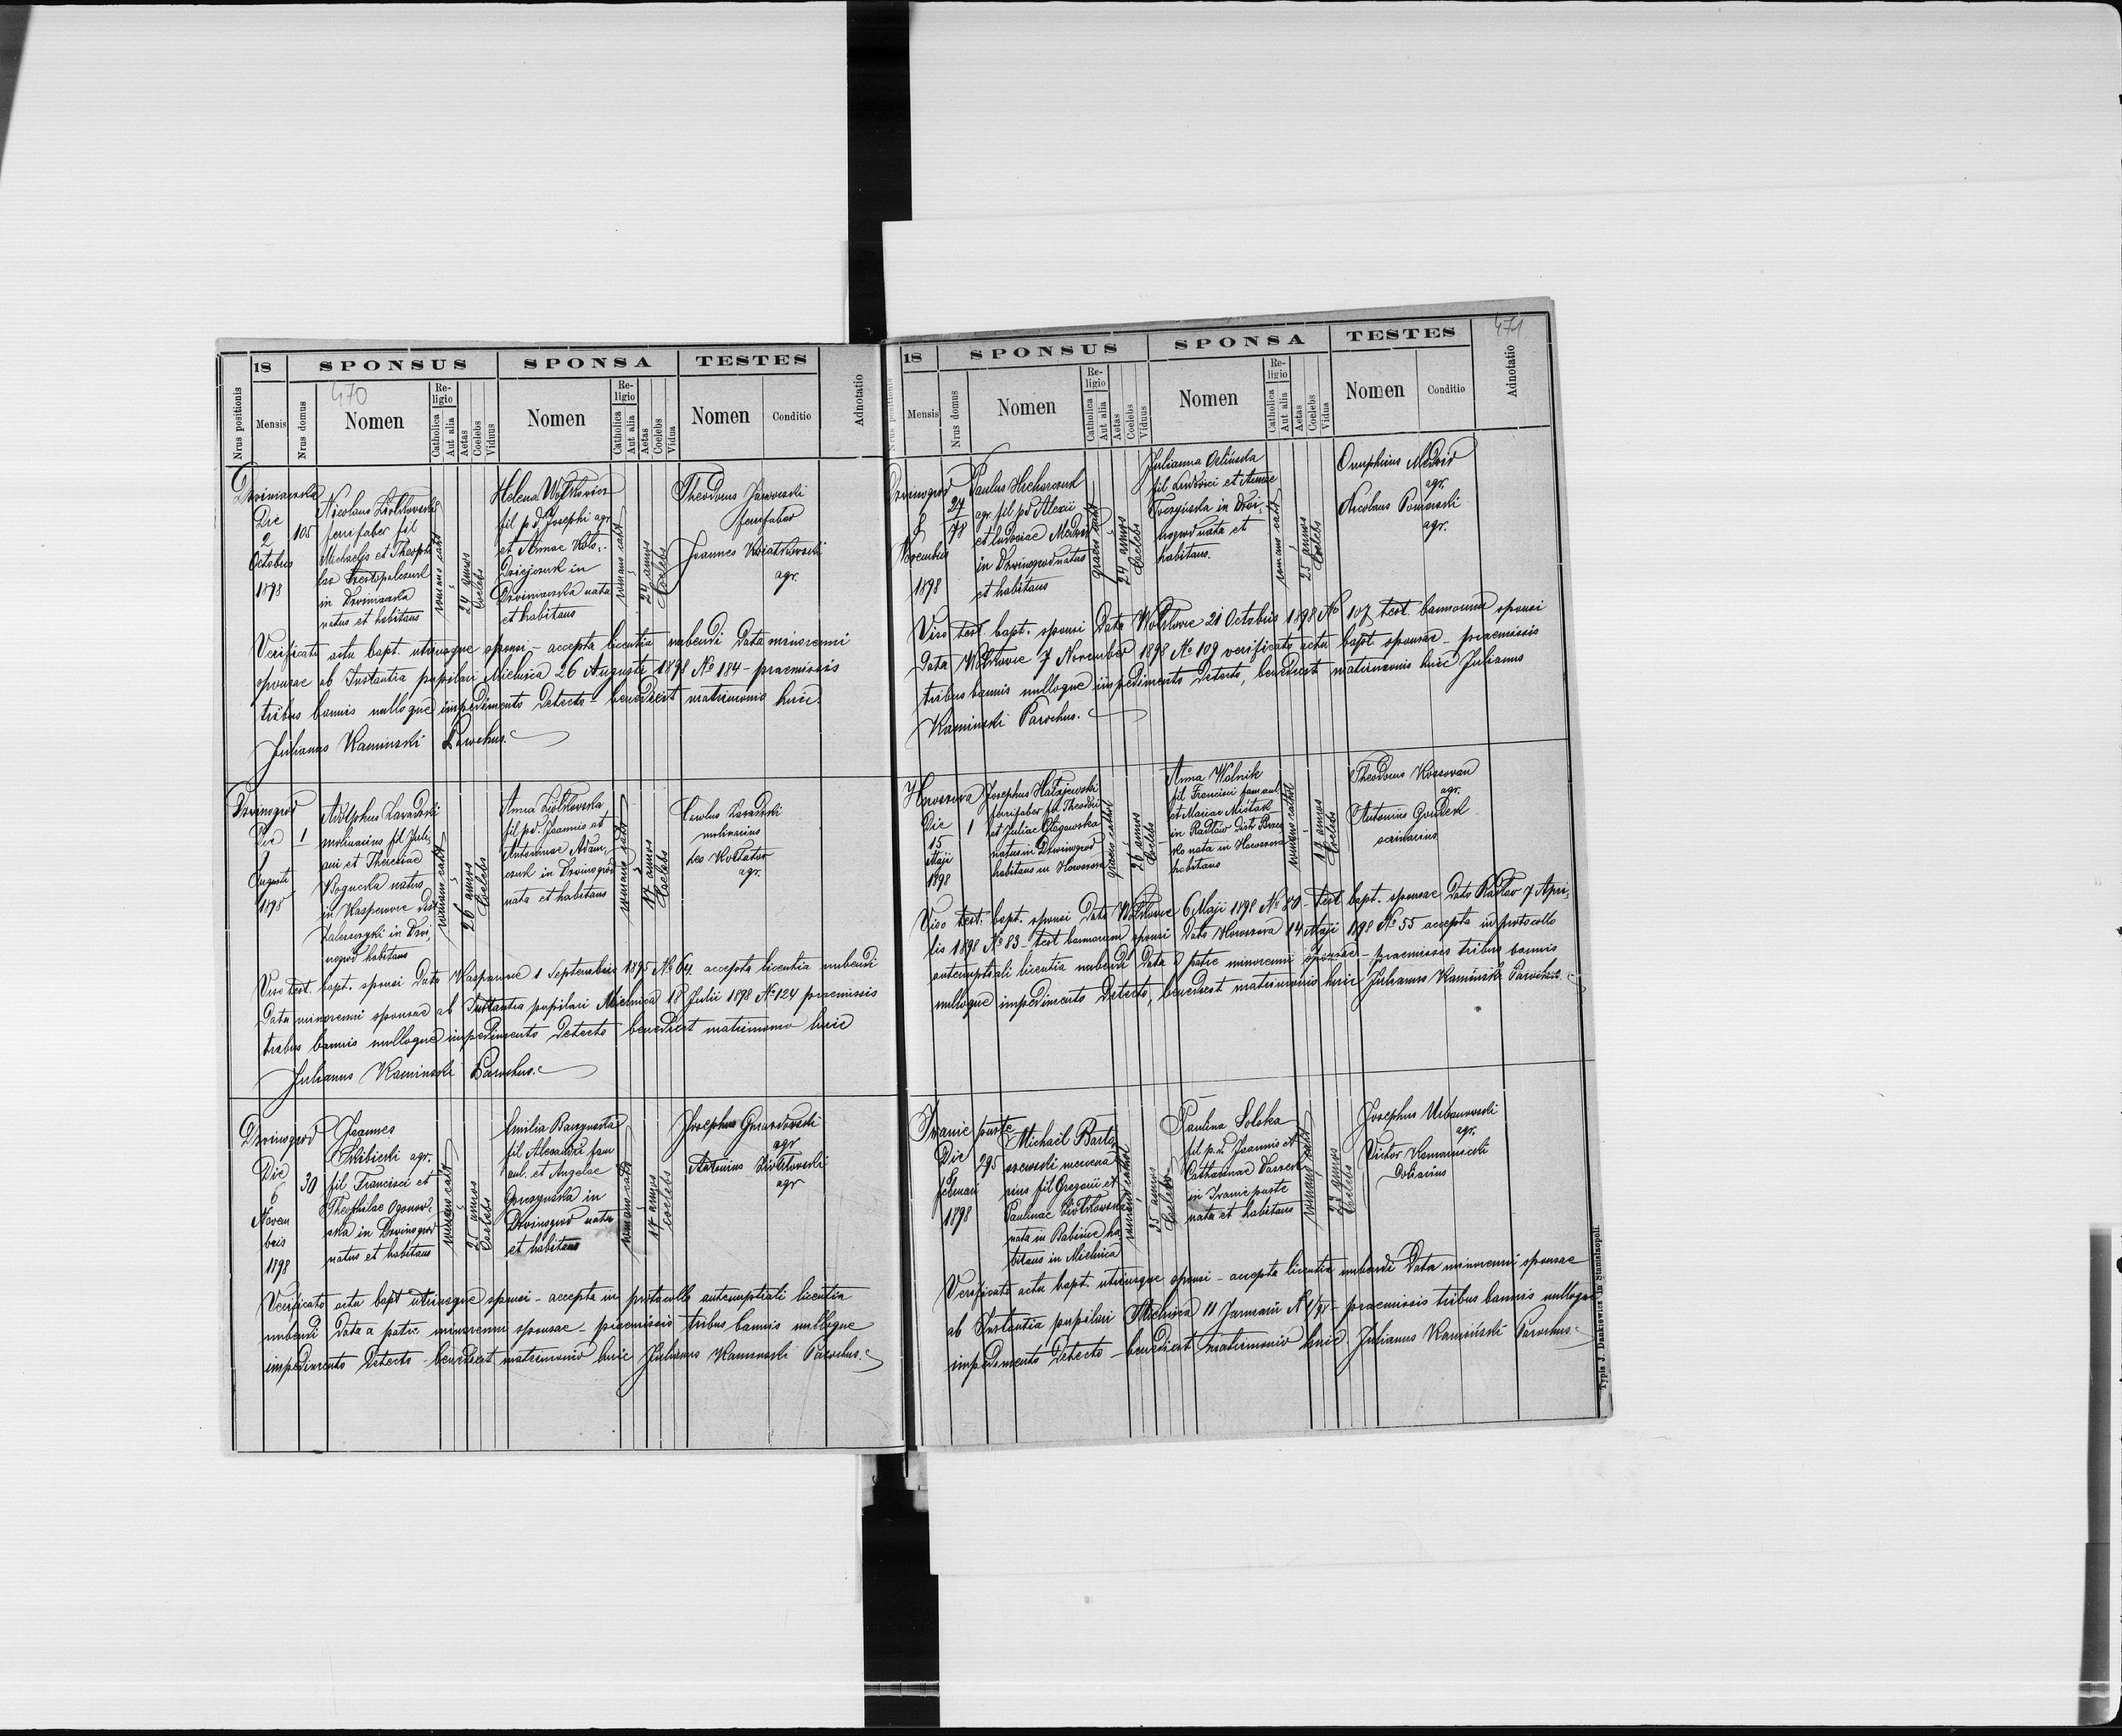 470
18
SPONSUS
SPONSA
TESTES
Nrus positionis
Mensis
Nrus domus
Nomen
Religio
Catholica
Aut alia
Aetas
Coelebs
Viduus
Nomen
Religio
Catholica
Aut alia
Aetas
Coelebs
Vidua
Nomen
Conditio
Adnotatio
Dzwiniaczka
Die
2
Octobris
1898
105
Nicolaus Ziółkowski
ferrifaber fil
Michaelis et Theophi
lae
in Dzwiniaczka
natus et habitans
romano cath
24 annos
Coelebs
Helena Wojtkowicz
fil p.d. Josephi agr
et Annae Koło
dziejczuk in
Dzwiniaczka nata
et habitans
romano cath
24 annos
Coelebs
Theodorus Jaworski
ferrifaber
Joannes Kwiatkowski
agr.
Verificato actu bapt. utriusque sponsi - accepta licentia nubendi data minorenni
sponsae ab Instantia pupilari Mielnica 26 Augusti 1898 No 184 - praemissis
tribus bannis nulloque impedimento detecto - benedixit matrimonio huic.
Julianus Kaminski Parochus.
Dzwinogrod
Die
1
Augusti
1898
1
Adolphus Zawadzki
molinarius fil Juli
ani et Theresiae
Bogucka natus
in Kasperowce dist
Zaleszczyki in Dzwi
nogrod habitans
romano cath
26 annos
Coelebs
Anna Ziółkowska
fil p.d. Joannis et
Antoninae Adam
czuk in Dzwinogrod
nata et habitans
romano cath
17 annos
Coelebs
Carolus Zawadzki
molinarius
Leo Kołtator
agr.
Viso test. bapt. sponsi dato Kasperowce 1 Septembris 1895 No 64. accepta licentia nubendi
data minorenni sponsae ab Instantia pupilari Mielnica 18 Julii 1898 No 124 praemissis
tribus bannis nulloque impedimento detecto benedixit matrimonio huic
Julianus Kaminski Parochus.
Dzwinogrod
Die
6
Novem
bris
1898
30
Joannes
Skibicki agr.
fil Francisci et
Theophilae Ogonow
ska in Dzwinogrod
natus et habitans
romano cath
25 annos
Coelebs
Emilia Barzynska
fil Alexandri fam
aul. et Angelae
Gorczynska in
Dzwinogrod nata
et habitans
romano cath
17 annos
coelebs
Josephus Gwardowski
agr
Antonius Ziółkowski
agr
Verificato actu bapt utriusque sponsi - accepta in protocollo antenuptiali licentia
nubendi data a patre minorenni sponsae - praemissis tribus bannis nulloque
impedimento detecto - benedixit matrimonio huic Julianus Kaminski Parochus.
471
18
SPONSUS
SPONSA
TESTES
Nrus positionis
Mensis
Nrus domus
Nomen
Religio
Catholica
Aut alia
Aetas
Coelebs
Viduus
Nomen
Religio
Catholica
Aut alia
Aetas
Coelebs
Vidua
Nomen
Conditio
Adnotatio
Dzwinogrod
8
Novembris
1898
27
78
Paulus
agr. fil p.d. Alexii
et Eudociae Medwid
in Dzwinogrod natus
et habitans
graeco cath
24 annos
Coelebs
Julianna Zielinska
fil Ludovici et Annae
Toczynska in Dzwi
nogrod nata et
habitans.
romano cath
25 annos
Coelebs
Onuphrius Medwid
agr.
Nicolaus Ponowski
agr.
Viso test. bapt. sponsi dato Wołkowce 21 Octobris 1898 No 107 test. bannorum sponsi
dato Wołkowce 7 November 1898 No 109 verificato actu bapt. sponsae - praemissis
tribus bannis nulloque impedimento detecto, benedixit matrimonio huic Julianus
Kaminski Parochus.
Horoszowa
Die
15
Maji
1898
1
Josephus Hałajewski
ferrifaber fil Theodori
et Juliae Głogowska
natus in Dzwinogrod
habitans in Horoszowa
graeco cathol
26 annos
Coelebs
Anna Wolnik
fil Francisci fam aul
et Mariae Misták
in Radłów distr Brzes
ko nata in Horoszowa
habitans
romano cathol
17 annos
Coelebs
Theodorus Kossowan
agr.
Antonius Goudek
scriniarius
Viso test. bapt. sponsi dato Wołkowce 6 Maji 1898 No 80 - test bapt. sponsae dato Radłow 7 Apri
lis 1898 No 83 - test bannorum sponsi dato Horoszowa 14 Maji 1898 No 55 accepta in protocollo
antenuptiali licentia nubendi data a patre minorenni sponsae - praemissis tribus bannis
nulloque impedimento detecto, benedixit matrimonio huic Julianus Kaminski Parochus.
Iwanie puste
Die
8
Februari
1898
295
Michaël Barto
szewski mercena
rius fil Gregorii et
Paulinae Ziółkowska
nata in Babince ha
bitans in Mielnica
romano cathol
25 annos
Coelebs
Paulina Solska
fil p.d. Joannis et
Catharinae
in Iwanie puste
nata et habitans
romano cath
23 annos
Coelebs
Josephus Urbanowski
agr.
Victor Komarnicki
doliarius
Verificato actu bapt. utriusque sponsi - accepta licentia nubendi data minorenni sponsae
ab Instantia pupilari Mielnica 11 Januarii No 1/98 - praemissis tribus bannis nulloque
impedimento detecto - benedixit matrimonio huic. Julianus Kaminski Parochus
Typis J. Dankiewicz in Stanislaopoli.